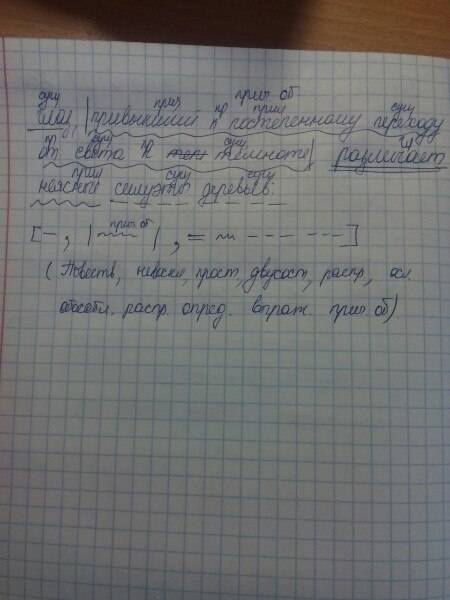 сущ прич прич. об
Глаз, |привыкший к постепенному переходу
от света к темноте| различает
неясные силуэты деревьев.
[–, |прич. об|, = ~ --- --- ---]
(Повеств, невоскл, прост, двусост, распр, осл.
обособл. распр. опред. выраж. прич. об)